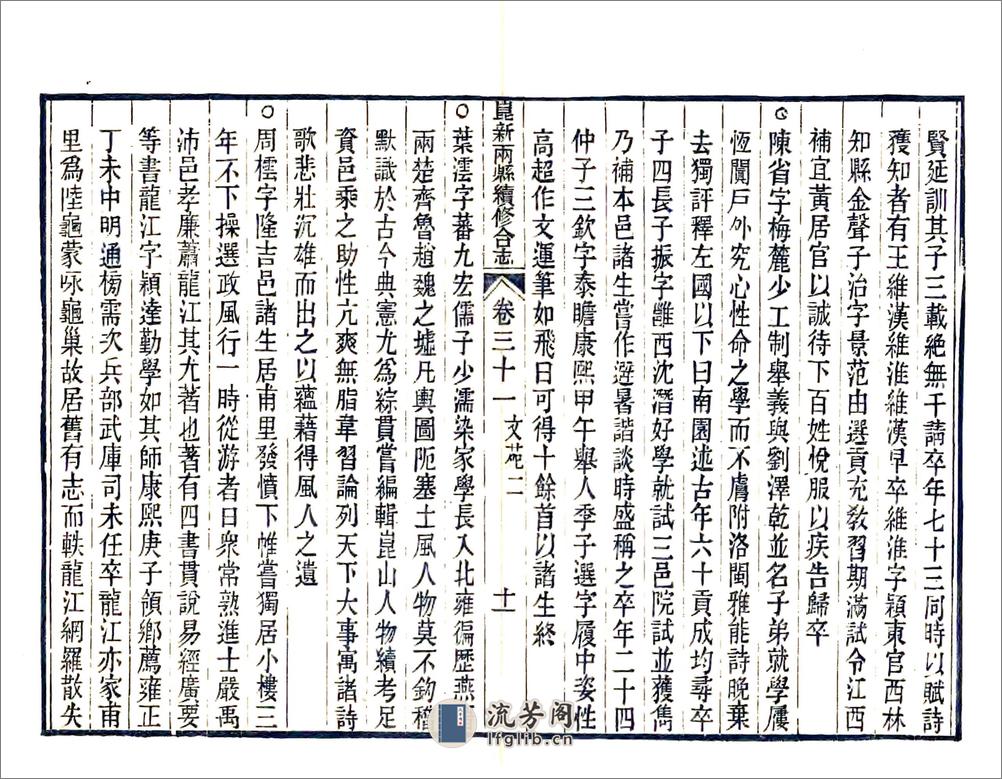 賢延訓其子三載絶無干請卒年七十三同時以賦詩
獲知者有王維漢維淮維漢早卒維淮字穎東官西林
知縣金聲子治字景范由選貢充敎習期滿試令江西
補宜黃居官以誠待下百姓悅服以疾告歸卒
陳省字梅麓少工制舉義與劉澤乾並名子弟就學屨
恆闐戶外究心性命之學而不膚附洛閩雅能詩晚棄
去獨評釋左國以下曰南園述古年六十貢成均尋卒
子四長子振字雝西沈潛好學就試三邑院試並獲雋
乃補本邑諸生嘗作避暑諧談時盛稱之卒年二十四
仲子三欽字泰瞻康熙甲午舉人季子選字履中姿性
高超作文運筆如飛日可得十餘首以諸生終
崑新兩縣續修合志 卷三十一 文苑二 十一
葉澐字蕃九宏儒子少濡染家學長入北雍徧歷燕
兩楚齊魯趙魏之墟凡輿圖阨塞土風人物莫不鈎稽
默識於古今典憲尤爲綜貫嘗編輯崑山人物續考足
資邑乘之助性亢爽無脂韋習論列天下大事寓諸詩
歌悲壯沉雄而出之以蘊藉得風人之遺
周橒字隆吉邑諸生居甫里發憤下帷嘗獨居小樓三
年不下操選政風行一時從游者日衆常熟進士嚴禹
沛邑孝廉蕭龍江其尤著也著有四書貫說易經廣要
等書龍江字穎達勤學如其師康熙庚子領鄉薦雍正
丁未中明通榜需次兵部武庫司未任卒龍江亦家甫
里爲陸龜蒙咏龜巢故居舊有志而軼龍江網羅散失
流芳阁
lfglib.cn